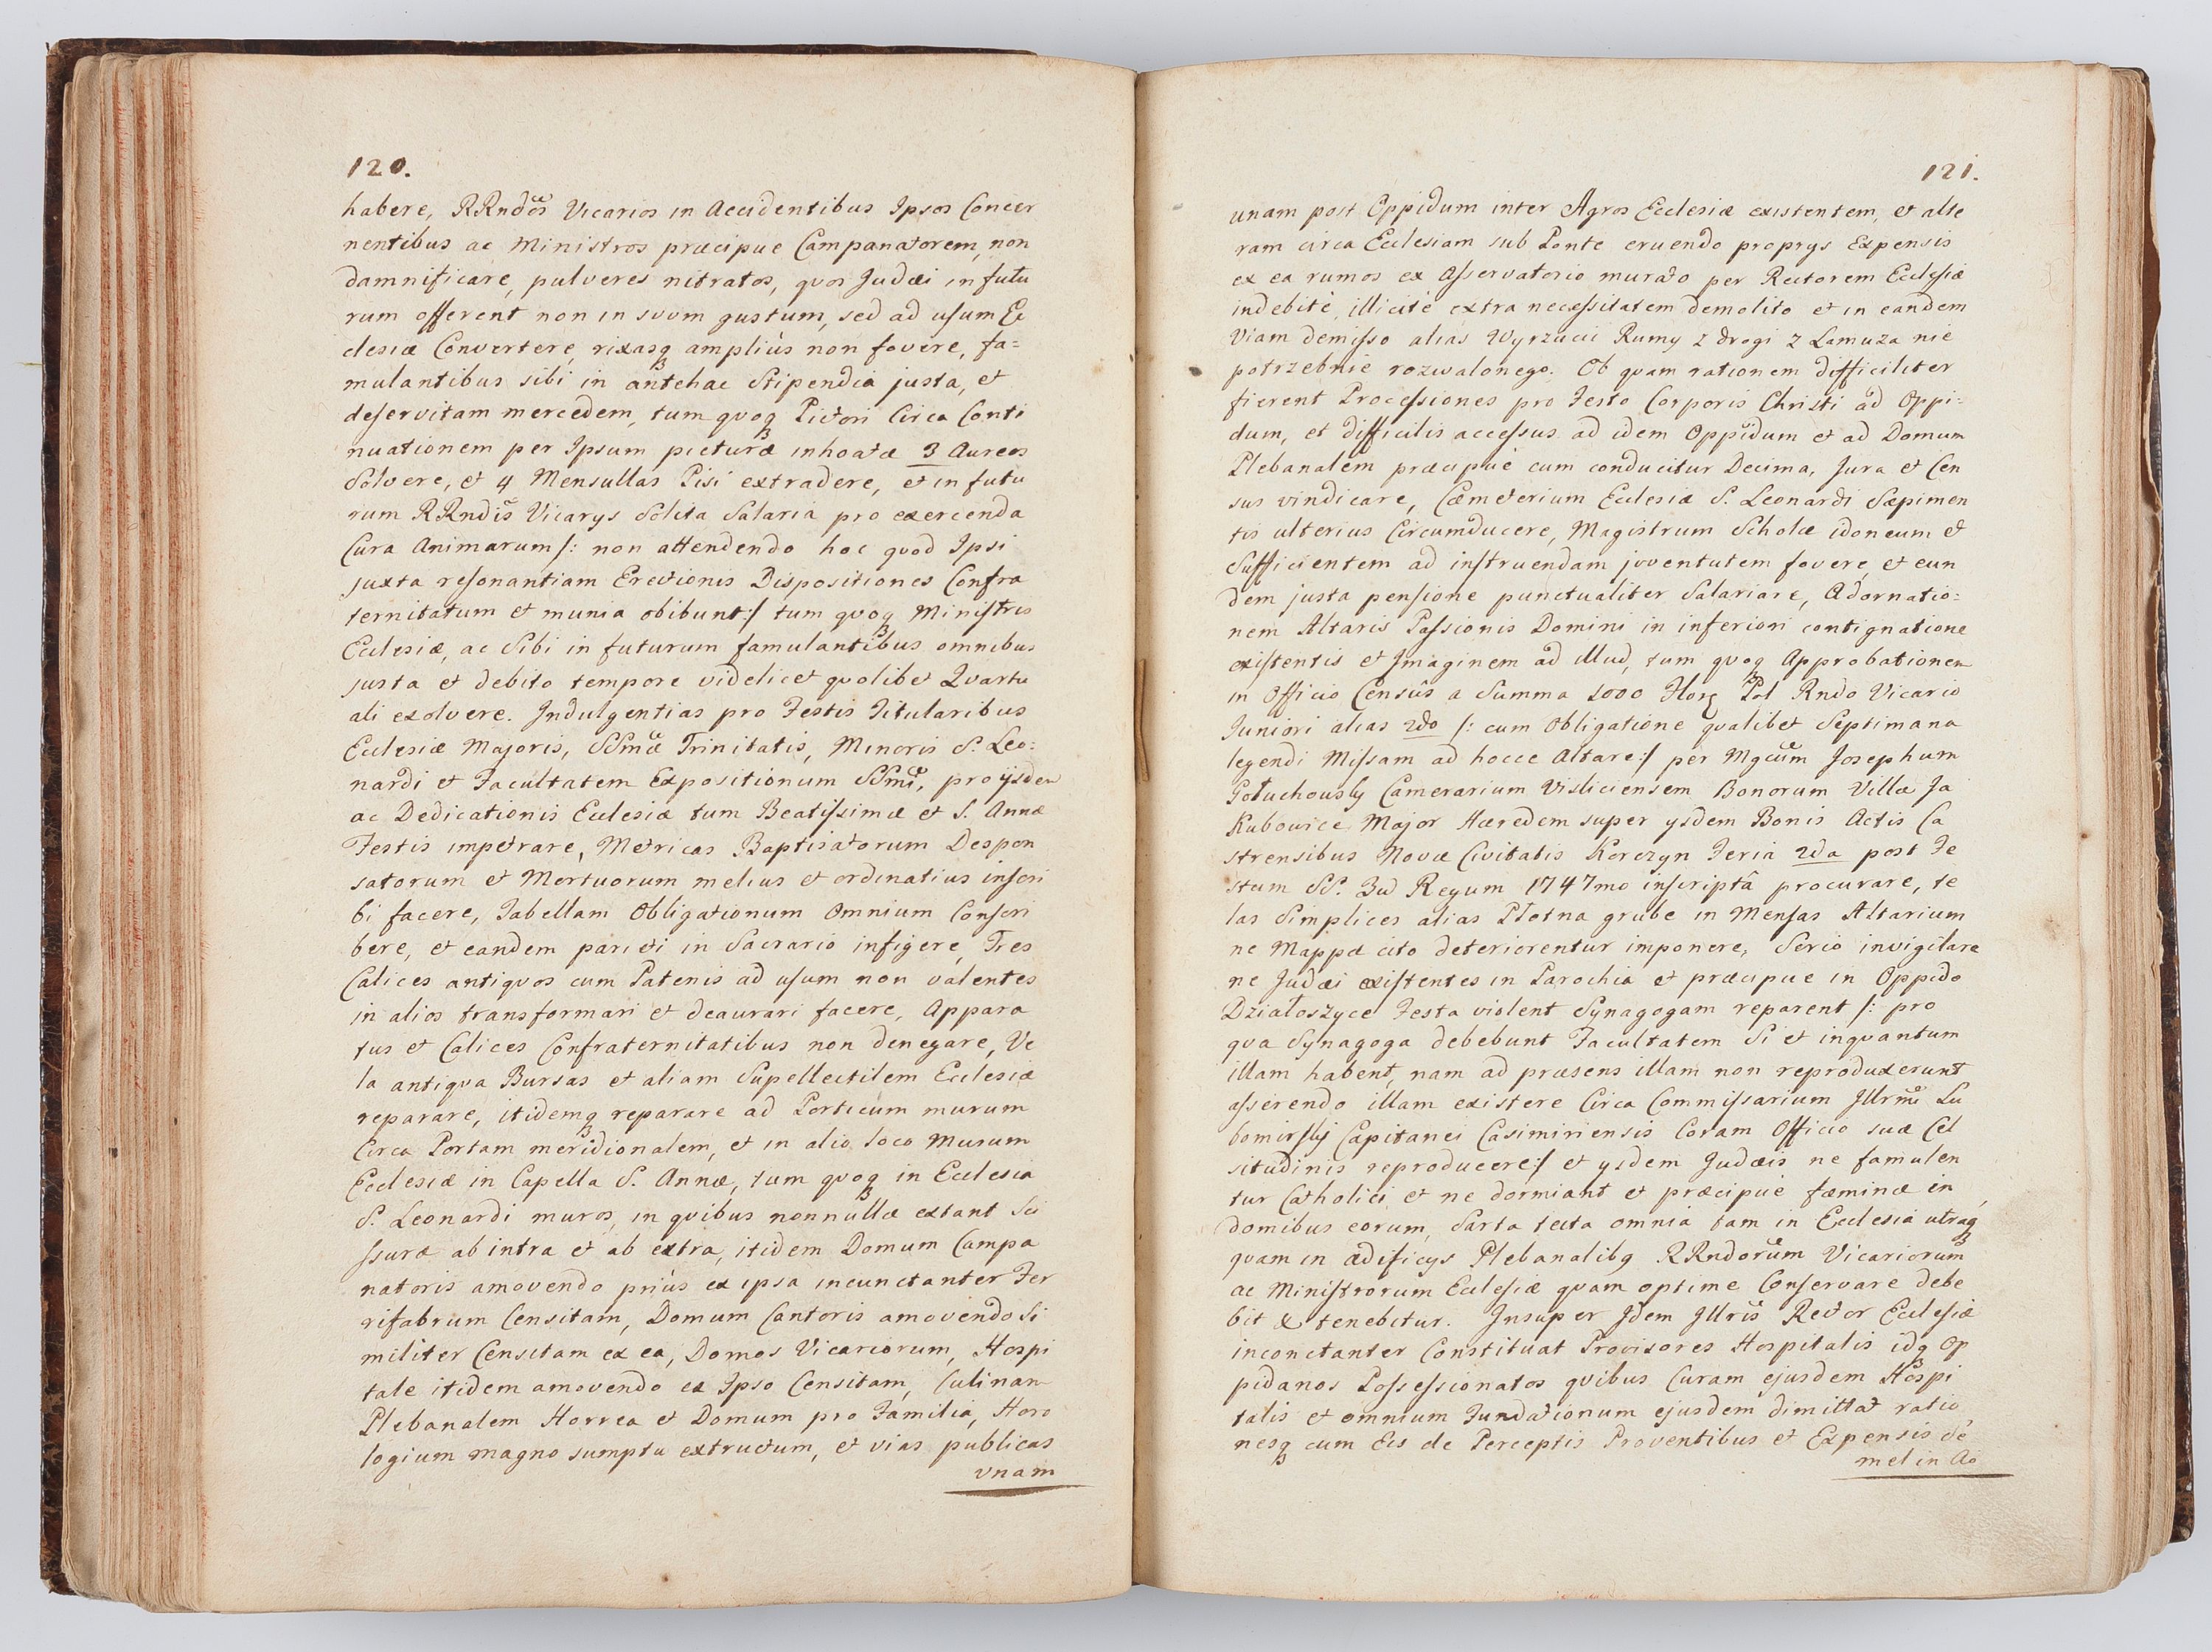 120.
habere, RRndos Vicarios in Accidentibus Ipsos Concer
nentibus ac Ministros præcipue Campanatorem, non
damnificare, pulveres nitratos, quos Judæi in futu
rum offerent non in suum gustum, sed ad usum Ec
clesiæ Convertere, rixasq amplius non fovere, fa=
mulantibus sibi in antehac Stipendia justa, et
deservitam mercedem, tum quoq Pictori Circa Conti
nuationem per Ipsum picturæ inhoatæ 3 Aureos
Solvere, et 4 Mensullas Pisi extradere, et in futu
rum RRndis Vicarys Solita Salaria pro exercenda
Cura Animarum /: non attendendo hoc quod Ipsi
juxta resonantiam Erectionis Dispositiones Confra
ternitatum et munia obibunt :/ tum quoq Ministris
Ecclesiæ, ac Sibi in futurum famulantibus omnibus
justa et debito tempore videlicet quolibet Quartu
ali exolvere. Indulgentias pro Festis Titularibus
Ecclesiæ Majoris, SSmæ Trinitatis, Minoris S. Leo=
nardi et Facultatem Expositionum SSmi, pro ijsdem
ac Dedicationis Ecclesiæ tum Beatissimæ et S. Annæ
Festis impetrare, Metricas Baptisatorum Despon
satorum et Mortuorum melius et ordinatius inscri
bi facere, Tabellam Obligationum Omnium Conscri
bere, et eandem parieti in Sacrario infigere, Tres
Calices antiquos cum Patenis ad usum non valentes
in alios transformari et deaurari facere, Appara
tus et Calices Confraternitatibus non denegare, Ve
la antiqua Bursas et aliam Supellectilem Ecclesiæ
reparare, itidemq reparare ad Porticum murum
Circa Portam meridionalem, et in alio loco Murum
Ecclesiæ in Capella S. Annæ, tum quoq in Ecclesia
S. Leonardi muros, in quibus nonnullæ extant Sci
ssuræ ab intra et ab extra, itidem Domum Campa
natoris amovendo priùs ex ipsa incunctanter Fer
rifabrum Censitam, Domum Cantoris amovendo Si
militer Censitam ex ea, Domos Vicariorum, Hospi
tale itidem amovendo ex Ipso Censitam, Culinam
Plebanalem Horrea et Domum pro Familia, Horo
logium magno sumptu extructum, et vias publicas
vnam
121.
unam post Oppidum inter Agros Ecclesiæ existentem, et alte
ram circa Ecclesiam sub Ponte eruendo proprys Expensis
ex ea rumos ex Asservatorio murato per Rectorem Ecclesiæ
indebitè, illicitè extra necessitatem demolito et in eandem
Viam demisso alias Wyrzucic Rumy z drogi z Lamuza nie
potrzebnie rozwalonego. Ob quam rationem difficiliter
fierent Processiones pro Festo Corporis Christi ad Oppi=
dum, et difficilis accessus ad idem Oppidum et ad Domum
Plebanalem præcipuè cum conducitur Decima, Jura et Cen
sus vindicare, Cæmeterium Ecclesiæ S. Leonardi Sæpimen
tis ulterius Circumducere, Magistrum Scholæ idoneum et
Sufficientem ad instruendam juventutem fovere, et eun
dem justa pensione punctualiter Salariare, Adornatio=
nem Altaris Passionis Domini in inferiori contignatione
existentis et Imaginem ad illud, tum quoq Approbationem
in Officio Censûs a Summa 1000 Flor Pol Rndo Vicario
Juniori alias 2do /: cum Obligatione qualibet Septimana
legendi Missam ad hocce Altare :/ per Mgcum Josephum
Gołuchowsky Camerarium Visliciensem Bonorum Villæ Ja
Kubowice Major Hæredem super ysdem Bonis Actis Ca
strensibus Novæ Civitatis Korczyn Feria 2da post Fe
stum SS. 3um Regum 1747mo inscriptâ procurare, te
las Simplices alias Płotna grube in Mensas Altarium
ne Mappæ cito deteriorentur imponere, Serio invigilare
ne Judæi existentes in Parochia et præcipue in Oppido
Działoszyce Festa violent Synagogam reparent /: pro
qua Synagoga debebunt Facultatem Si et inquantum
illam habent, nam ad præsens illam non reproduxerunt
asserendo illam existere Circa Commissarium Illrmi Lu
bomirskij Capitanei Casimiriensis Coram Officio suæ Cel
situdinis reproducere :/ et ysdem Judæis ne famulen
tur Catholici et ne dormiant et præcipuè fæminæ in
domibus eorum, Sarta tecta omnia tam in Ecclesia utraq
quam in ædificys Plebanalibq RRndorum Vicariorum
ac Ministrorum Ecclesiæ quam optime Conservare debe
bit & tenebitur. Insuper Idem Illris Rector Ecclesiæ
inconctanter Constituat Provisores Hospitalis idq Op
pidanos Possessionatos quibus Curam ejusdem Hospi
talis et omnium Fundationum ejusdem dimittat ratio
nesq cum Eis de Perceptis Proventibus et Expensis Se
mel in Ao